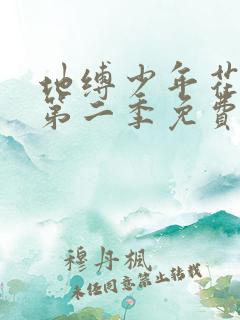 地缚少年花
第二季免費
穆丹楓
未经同意禁止转载